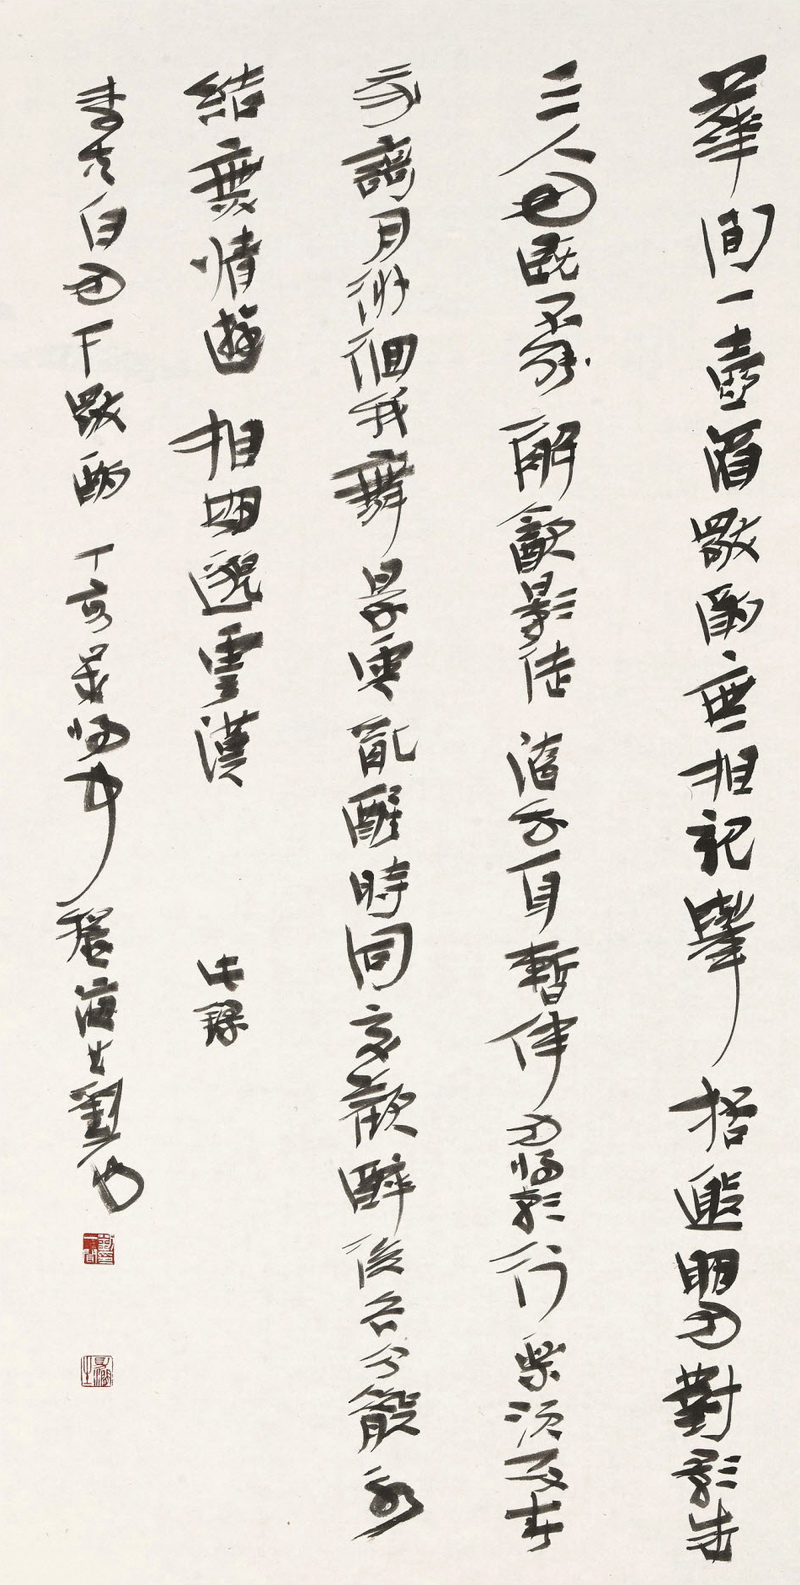 華間一壺酒獨酌無相親舉桮邀明月對影成
三人月既不解飲影徒隨我身暫伴月將影行樂須及春
我謌月徘徊我舞影零亂醒時同交歡醉後各分散永
結無情遊相期邈雲漢 此錄
李太白月下獨酌丁亥歲